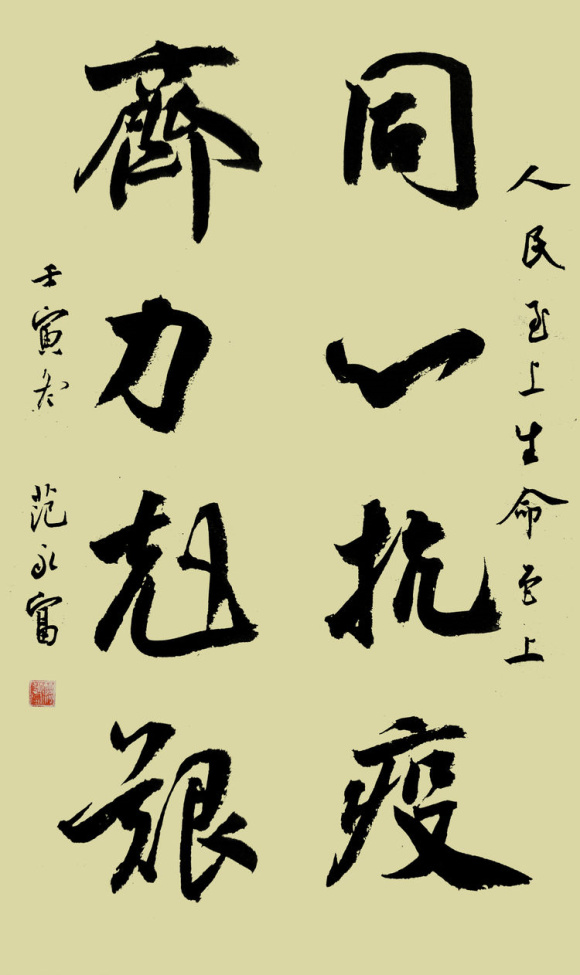 人民至上生命至上
同心抗疫
齊力尅艱
壬寅冬 范永富